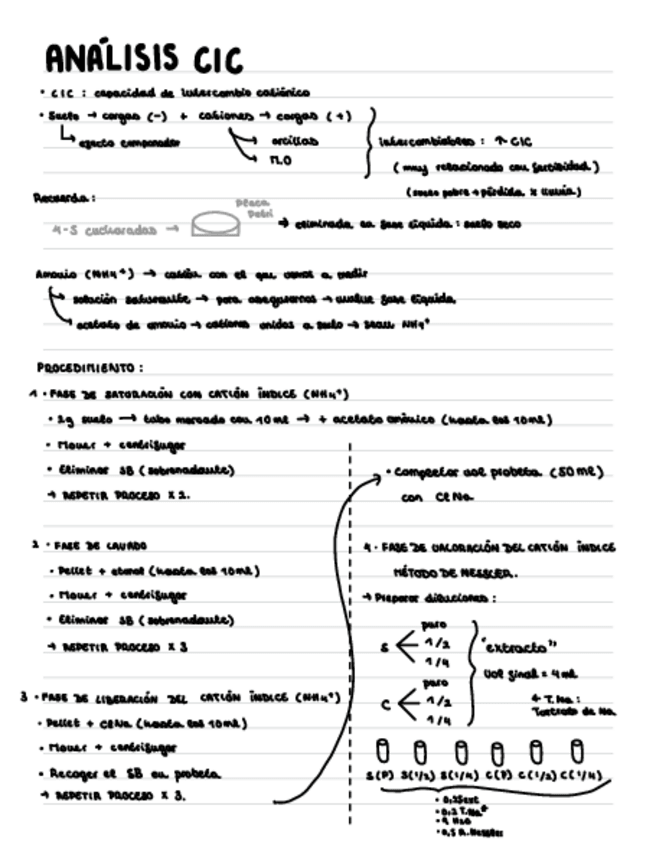 ANÁLISIS CIC
· CIC : capacidad de intercambio catiónico
· Suelo → cargas (-) + cationes → cargas (+)
↳ efecto tamponador
→ arcillas
→ M.O
Intercambiables : ↑ CIC
( muy relacionado con fertilidad )
( suelo pobre → pérdida x lluvia )
Recuerda :
4-5 cucharadas →
Placa
Petri
→ eliminada la fase líquida : suelo seco
Amonio (NH4+) → catión con el que vamos a medir
→ solución saturante → para asegurarnos → fase líquida.
→ acetato de amonio → cationes unidos a suelo → sean NH4+
PROCEDIMIENTO :
1 · FASE DE SATURACIÓN CON CATIÓN ÍNDICE (NH4+)
· 2g suelo → tubo marcado con 10 ml → + acetato amónico (hasta los 10ml)
· Mover + centrifugar
· Eliminar SB (sobrenadante)
→ REPETIR PROCESO X 2.
2 · FASE DE LAVADO
· Pellet + etanol (hasta los 10ml)
· Mover + centrifugar
· Eliminar SB (sobrenadante)
→ REPETIR PROCESO X 3
3 · FASE DE LIBERACIÓN DEL CATIÓN ÍNDICE (NH4+)
· Pellet + ClNa (hasta los 10ml)
· Mover + centrifugar
· Recoger el SB en probeta
→ REPETIR PROCESO X 3.
· Completar vol probeta (50 ml)
con ClNa
4 · FASE DE VALORACIÓN DEL CATIÓN ÍNDICE
MÉTODO DE NESSLER.
→ Preparar diluciones :
S
puro
1/2
1/4
C
puro
1/2
1/4
"extracto"
Vol final = 4 ml
* T.Na :
Tartrato de Na
S(P) S(1/2) S(1/4) C(P) C(1/2) C(1/4)
· 0,2 T.Na*
· 0,5 R. Nessler